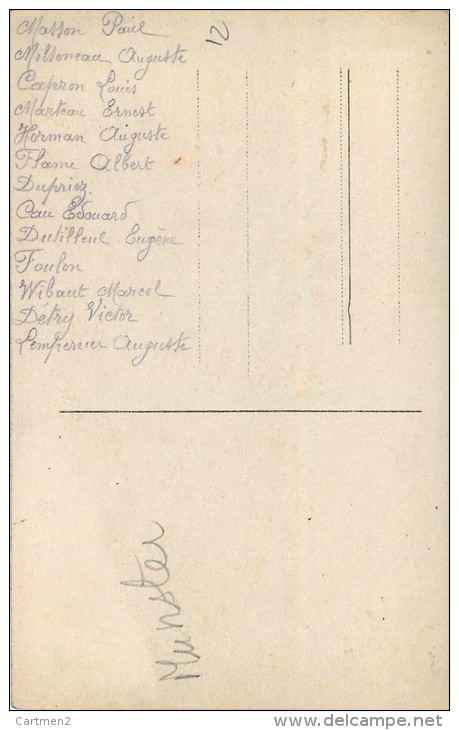 Masson Paul
Milsoneau Auguste
Capron Louis
Marteau Ernest
Horman Auguste
Flame Albert
Dupriez
Cau Edouard
Dutilleul Eugène
Foulon
Wibaut Marcel
Détry Victor
Lempereur Auguste
12
Munster
Cartmen2
www.delcampe.net